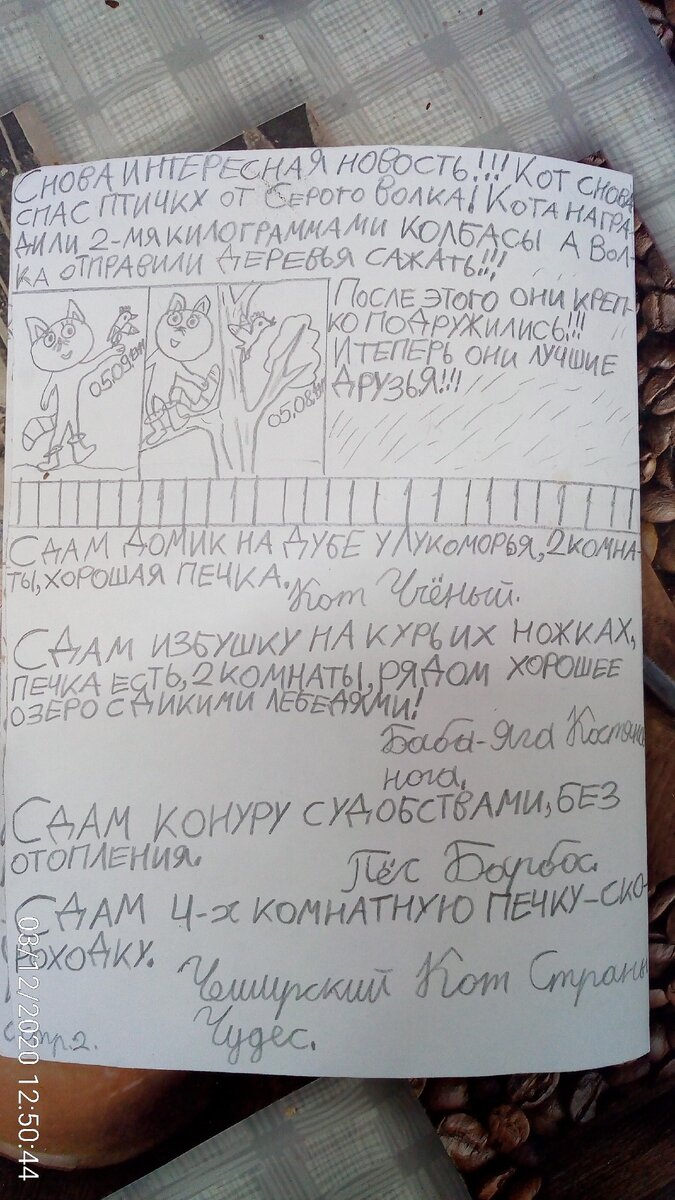 СНОВА ИНТЕРЕСНАЯ НОВОСТЬ!!! КОТ СНОВА
СПАС ПТИЧКУ ОТ СЕРОГО ВОЛКА! КОТА НАГРА-
ДИЛИ 2-МЯ КИЛОГРАММАМИ КОЛБАСЫ А ВОЛ-
КА ОТПРАВИЛИ ДЕРЕВЬЯ САЖАТЬ!!!
ПОСЛЕ ЭТОГО ОНИ КРЕП-
КО ПОДРУЖИЛИСЬ!!!
И ТЕПЕРЬ ОНИ ЛУЧШИЕ
ДРУЗЬЯ!!!
СДАМ ДОМИК НА ДУБЕ У ЛУКОМОРЬЯ, 2 КОМНА-
ТЫ, ХОРОШАЯ ПЕЧКА.
Кот Учёный.
СДАМ ИЗБУШКУ НА КУРЬИХ НОЖКАХ,
ПЕЧКА ЕСТЬ, 2 КОМНАТЫ, РЯДОМ ХОРОШЕЕ
ОЗЕРО С ДИКИМИ ЛЕБЕДЯМИ!
Баба-Яга Костяна
нога.
СДАМ КОНУРУ С УДОБСТВАМИ, БЕЗ
ОТОПЛЕНИЯ.
Пёс Барбос.
СДАМ 4-х КОМНАТНУЮ ПЕЧКУ-СКО-
РОХОДКУ.
Чеширский Кот Страны
Чудес.
стр.2.
08/12/2020 12:50:44